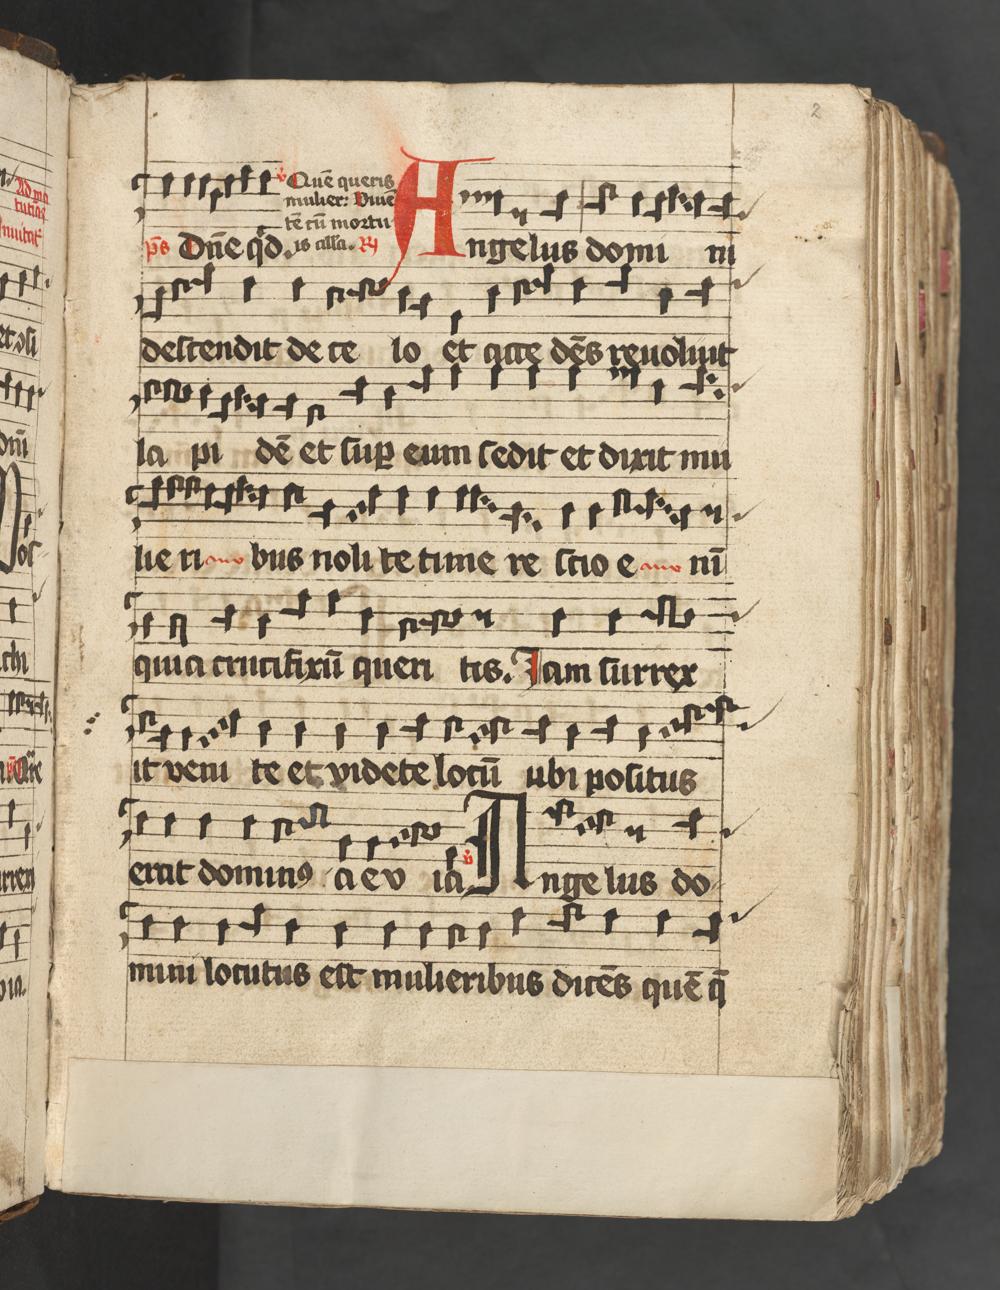 2
Quē queris
mulier: viuē
tē cū mortu
ps Dn̄e qd. is alla. R
Angelus domi ni
descendit de ce lo et acce dēs reuoluit
la pi dē et sup eum sedit et dixit mu
lie ri bus noli te time re scio e nī
quia crucifixū queri tis. Iam surrex
it veni te et videte locū ubi positus
erat dominꝰ a e v ia Angelus do
mini locutus est mulieribus dicēs quē q̄